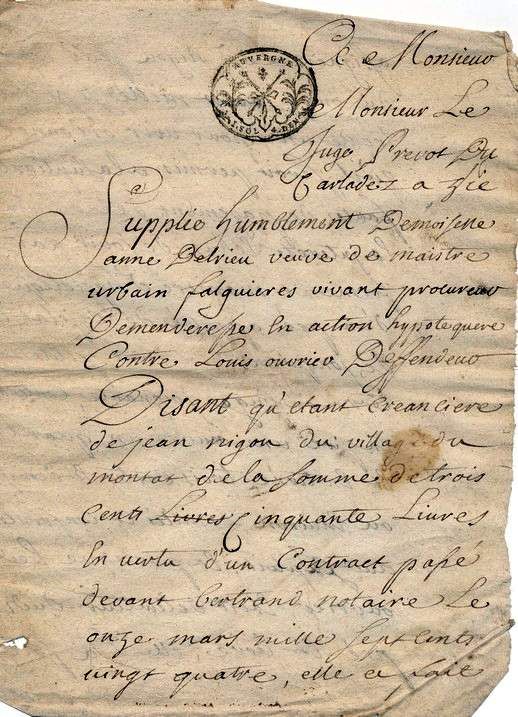 AUVERGNE
1. SOL 4. DEN
A Monsieur
Monsieur Le
Juge Prevot Du
Carladez a Vic
Supplie humblement Demoiselle
anne Delrieu veuve de maistre
urbain falguieres vivant procureur
Demenderesse En action hypotequere
Contre Louis ouvrier Deffendeur
Disant qu'etant Creanciere
de jean rigou du village du
montat de la somme de trois
cents Livres Cinquante Livres
En vertu d'un Contract passé
devant bertrand notaire Le
onze mars mille sept cents
vingt quatre, elle a faie